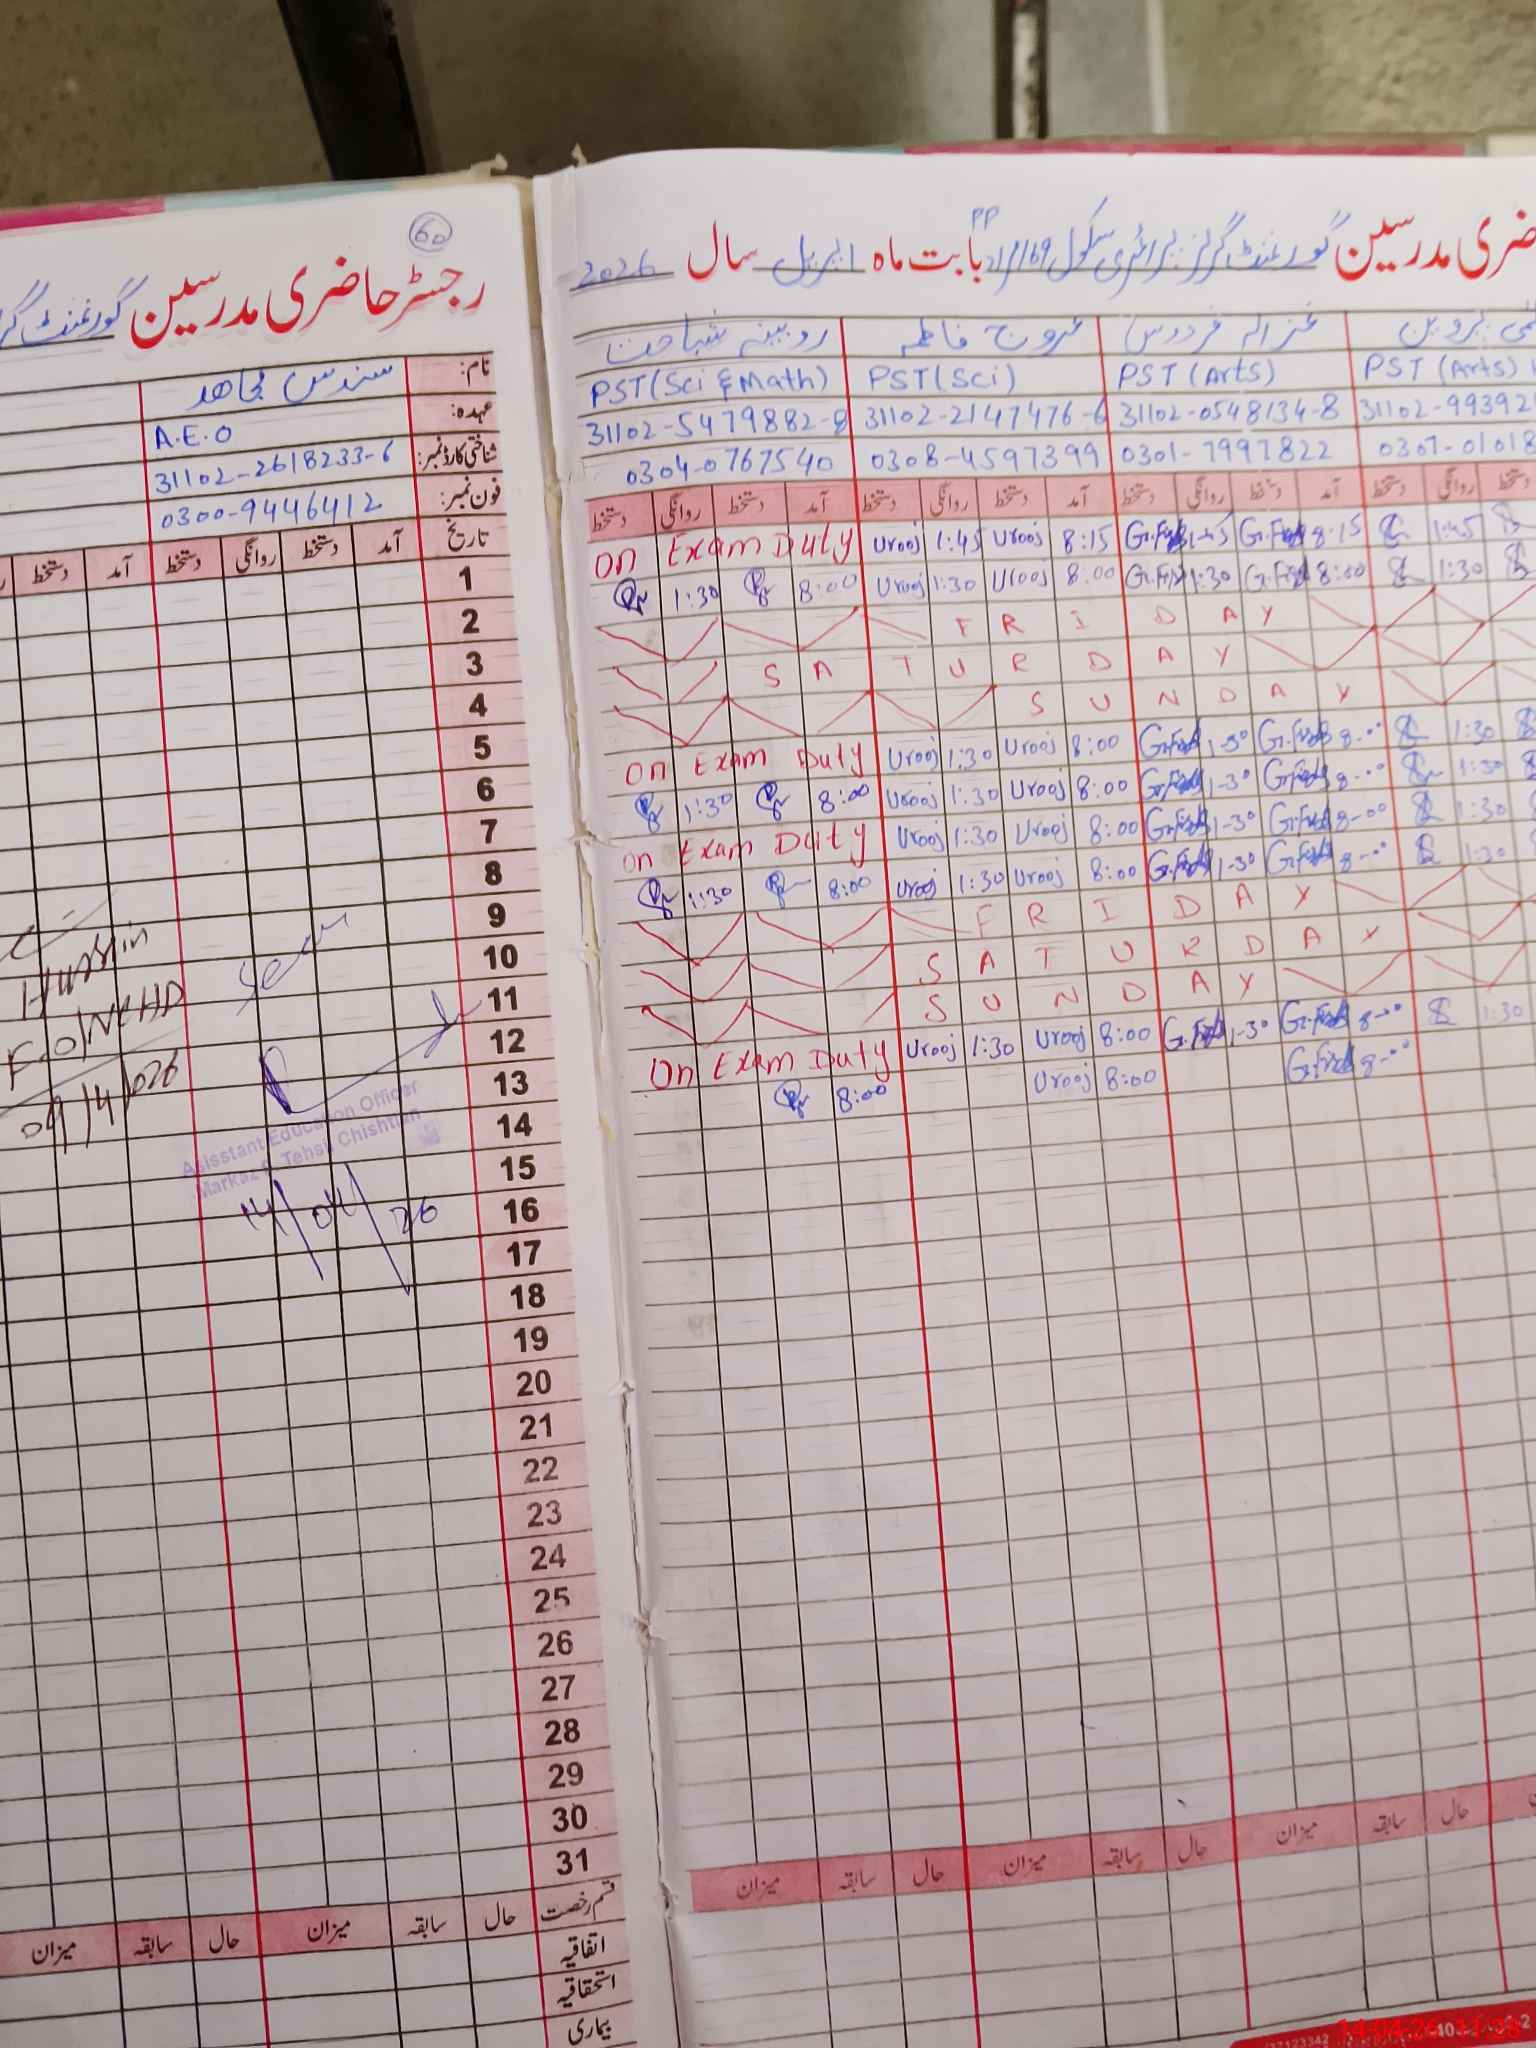 60
رجسٹر حاضری مدرسین گورنمنٹ گر
نام: سندس مجاھد
عہدہ: A.E.O
شناختی کارڈ نمبر: 31102-2618233-6
فون نمبر: 0300-9446412
تاریخ آمد دستخط روانگی دستخط آمد دستخط
1
2
3
4
5
6
7
8
9
10
11
12
13
14
15
16
17
18
19
20
21
22
23
24
25
26
27
28
29
30
31
Hussain
09/4/026
Assistant Education Officer
Tehsil Chishtian
14/04/26
قسم رخصت حال سابقہ میزان حال سابقہ میزان
اتفاقیہ
استحقاقیہ
بیماری
ضری مدرسین گورنمنٹ گرلز پرائمری سکول 169/مراد PP بابت ماہ اپریل سال 2026
پروین غزالہ فردوس عروج فاطمہ روبینہ
PST (Sci & Math) PST (Sci) PST (Arts) PST (Arts)
31102-5479882-8 31102-2147476-6 31102-0548134-8 31102-99392
0304-0767540 0308-4597399 0301-7997822 0307-01018
دستخط روانگی دستخط آمد دستخط روانگی دستخط آمد دستخط روانگی دستخط آمد دستخط روانگی دستخط
On Exam Duty Urooj 1:45 Urooj 8:15 G.Firds 1-45 G.Firds 8-15 1:45
1:30 8:00 Urooj 1:30 Urooj 8:00 G.Firds 1:30 G.Firds 8:00 1:30
FRIDAY
SATURDAY
SUNDAY
On Exam Duty Urooj 1:30 Urooj 8:00 G.Firds 1-30 G.Firds 8-00 1:30
1:30 8:00 Urooj 1:30 Urooj 8:00 G.Firds 1-30 G.Firds 8-00 1:30
On Exam Duty Urooj 1:30 Urooj 8:00 G.Firds 1-30 G.Firds 8-00 1:30
1:30 8:00 Urooj 1:30 Urooj 8:00 G.Firds 1-30 G.Firds 8-00 1:30
FRIDAY
SATURDAY
SUNDAY
On Exam Duty Urooj 1:30 Urooj 8:00 G.Firds 1-30 G.Firds 8-00 1:30
8:00 Urooj 8:00 G.Firds 8-00
میزان سابقہ حال میزان سابقہ حال میزان سابقہ حال